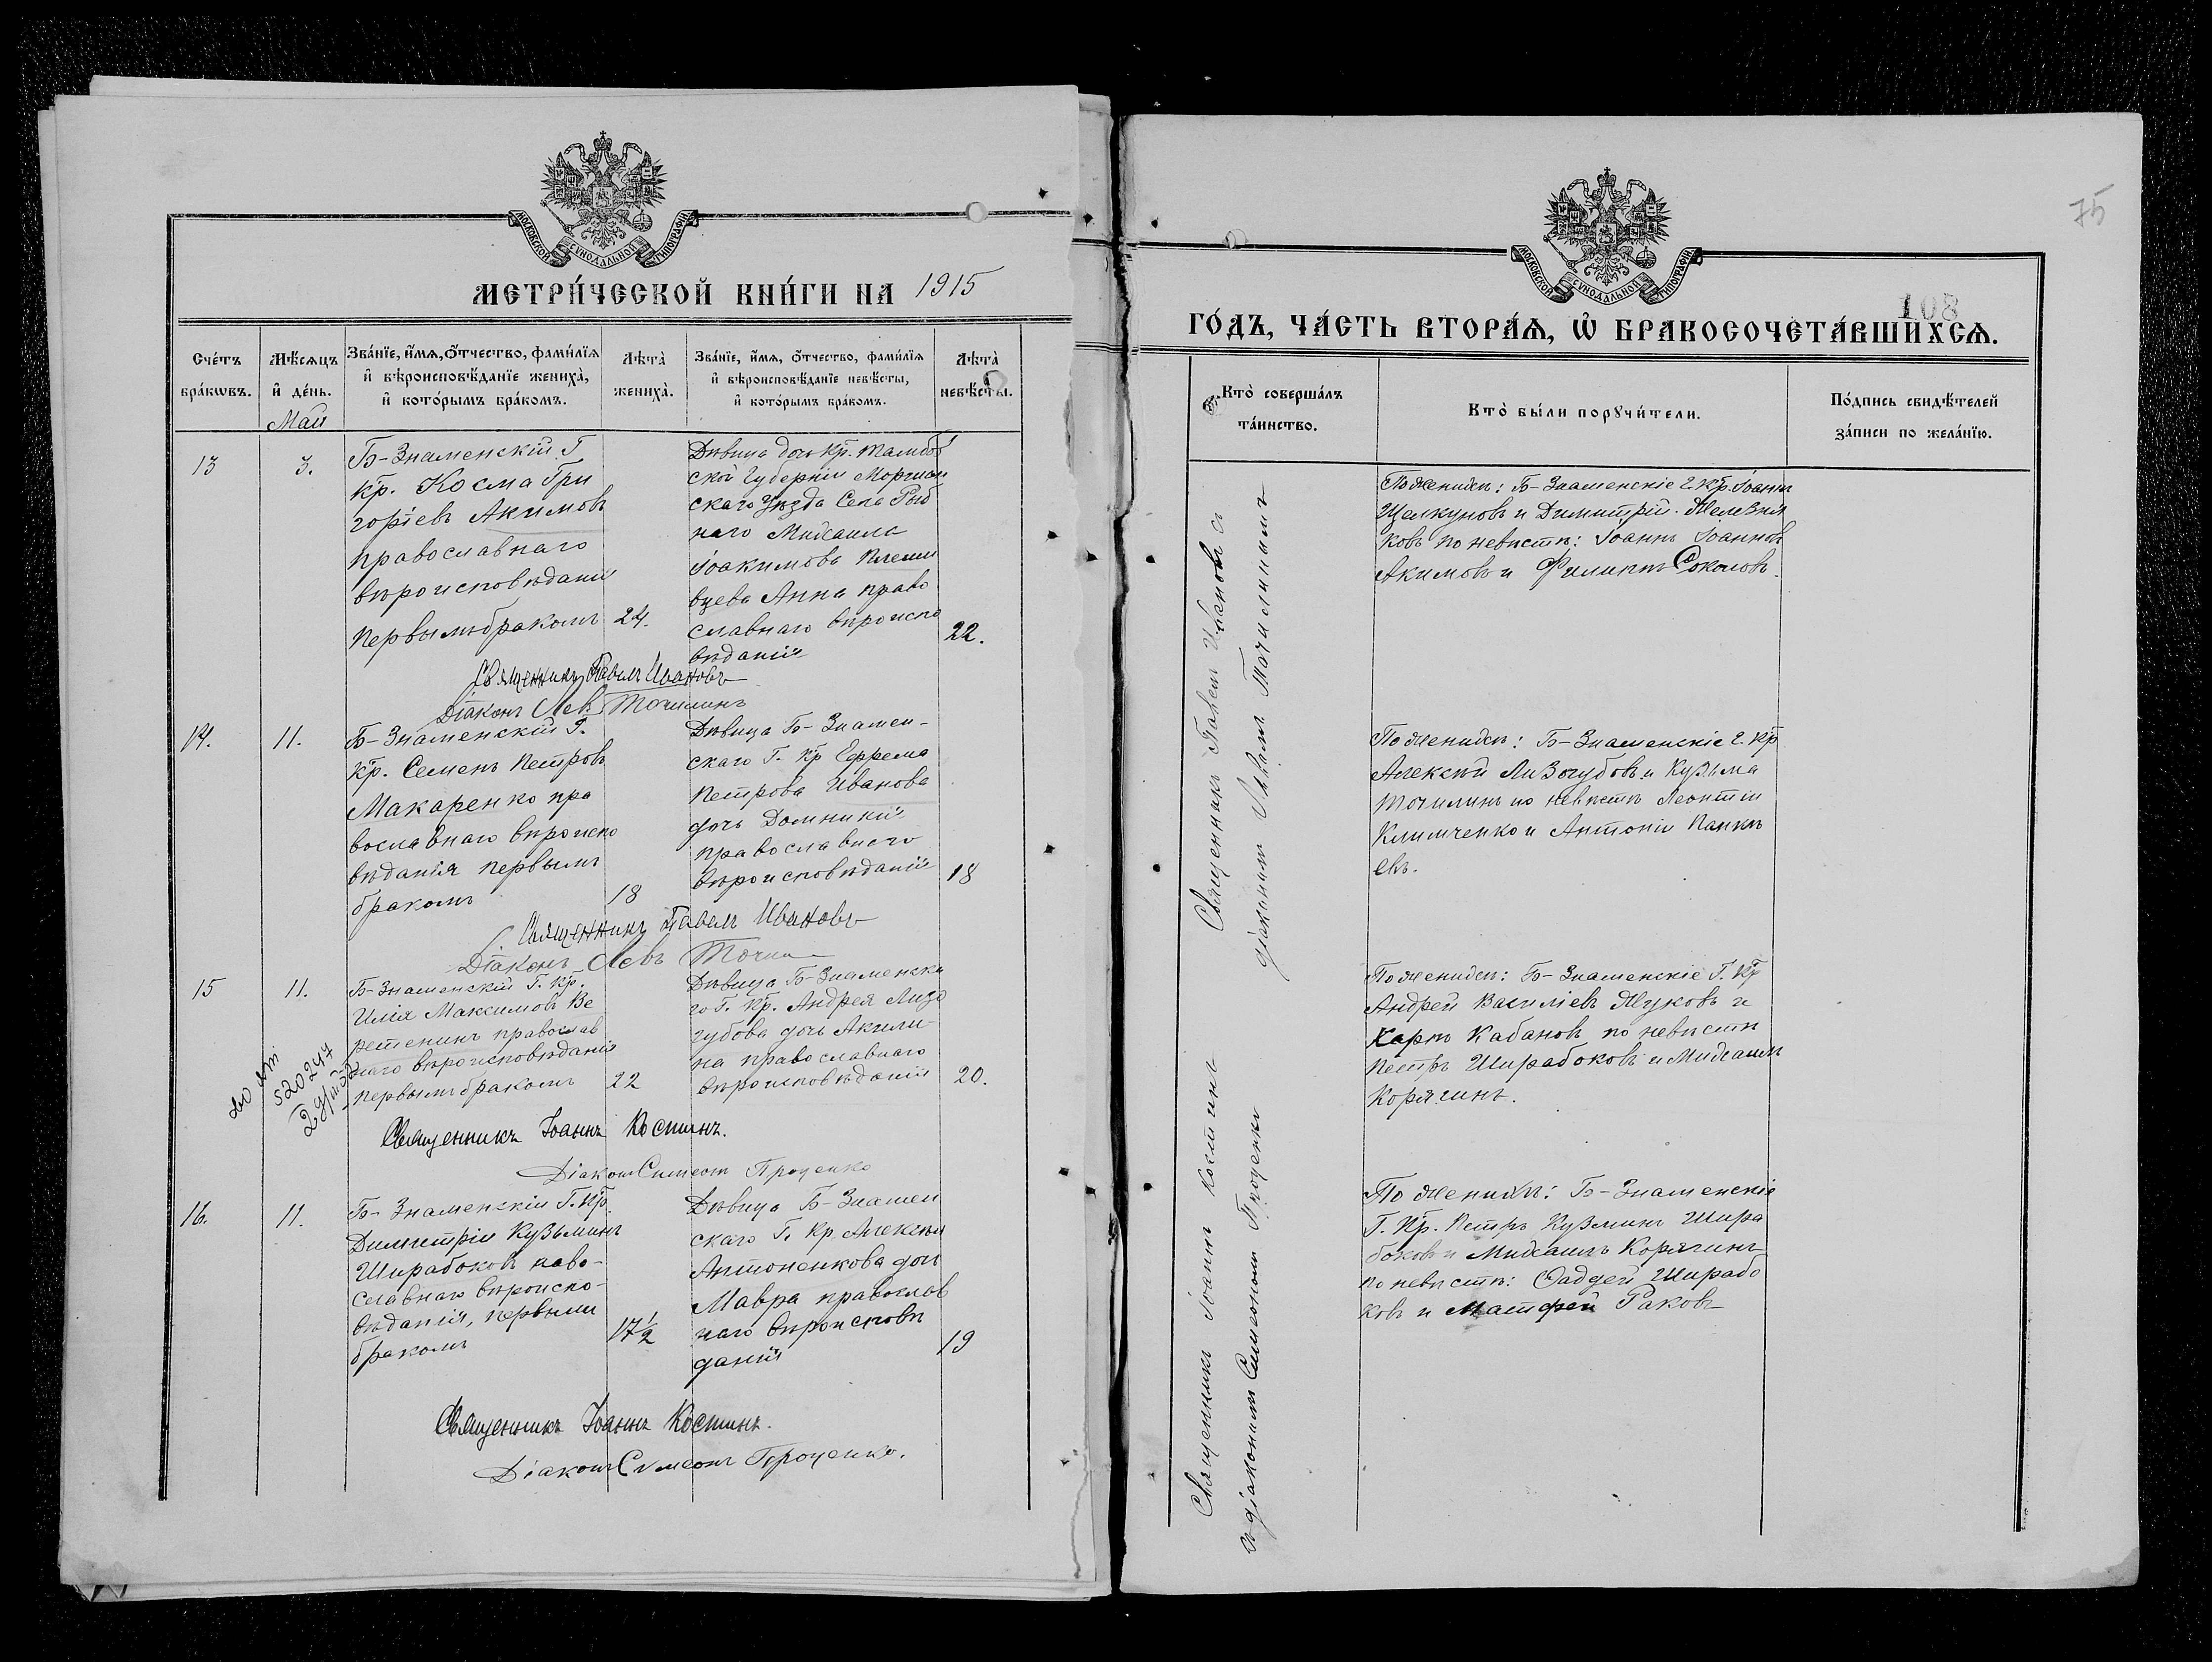 МОСКОВСКОЙ СѴНОДАЛЬНОЙ ТИПОГРАФІИ
МЕТРИ́ЧЕСКОЙ КНИ́ГИ НА 1915
Сче́тъ бра́кѡвъ.
Мѣ́сяцъ и҆ де́нь.
Зва́нїе, и҆́мѧ, ѻ҆́тчество, фами́лїѧ и҆ вѣроисповѣ́данїе жениха̀, и҆ кото́рымъ бра́комъ.
Лѣ́та̀ жениха̀.
Зва́нїе, и҆́мѧ, ѻ҆́тчество, фами́лїѧ и҆ вѣроисповѣ́данїе невѣ́сты, и҆ кото́рымъ бра́комъ.
Лѣ́та̀ невѣ́сты.
Май
13
3.
Б-Знаменскій Г.
кр. Косма Гри
горіевъ Акимовъ
православнаго
вѣроисповѣданія
первымъ бракомъ
24.
Дѣвица дочь кр. Тамбов
ской Губерніи Моршан
скаго Уѣзда Села Рыб
наго Михаила
Іоакимова
Анна право
славнаго вѣроиспо
вѣданія
22.
Священникъ Павелъ Ивановъ
Діаконъ Левъ Точилинъ
14.
11.
Б-Знаменскій Г.
кр. Семенъ Петровъ
Макаренко пра
вославнаго вѣроиспо
вѣданія первымъ
бракомъ
18
Дѣвица Б-Знамен-
скаго Г. кр Ефрема
Петрова Иванова
дочь Домникія
православнаго
вѣроисповѣданія
18
Священникъ Павелъ Ивановъ
Діаконъ Левъ
15
11.
Б-Знаменскій Г. кр.
Илія Максимовъ Ве
ретенинъ православ
наго вѣроисповѣданія
первымъ бракомъ
22
Дѣвица Б-Знаменска
го Г. кр. Андрея Лизо
губова дочь Акили-
на православнаго
вѣроисповѣданія
20.
520247
Священникъ Іоаннъ Костинъ.
Діаконъ Симеонъ Проценко
16.
11.
Б-Знаменскій Г. кр.
Димитрій Кузьминъ
Ширабоковъ
славнаго вѣроиспо-
вѣданія, первымъ
бракомъ
17½
Дѣвица Б-Знамен
скаго Г. кр. Алексѣя
Антоненкова дочь
Мавра православ
наго вѣроисповѣ
данія
19
Священникъ Іоаннъ Костинъ.
Діаконъ Симеонъ Проценко.
75
МОСКОВСКОЙ СѴНОДАЛЬНОЙ ТИПОГРАФІИ
108
ГО́ДЪ, ЧА́СТЬ ВТОРА́Ѧ, Ѡ҆ БРАКОСОЧЕТА́ВШИХСѦ.
Кто̀ соверша́лъ та́инство.
Кто̀ бы́ли порꙋчи́тели.
По́дпись свидѣ́телей за́писи по жела́нїю.
Священникъ Павелъ Ивановъ съ
діакономъ Львомъ Точилинымъ
Священникъ Іоаннъ Костинъ
съ діакономъ Симеономъ Проценко
По женихѣ: Б-Знаменскіе Г. кр. Іоаннъ
Щелкуновъ и Димитрій Желѣзня
ковъ по невѣстѣ: Іоаннъ Іоанновъ
Акимовъ и Филиппъ Соколовъ.
По женихѣ: Б-Знаменскіе Г. кр
Алексѣй Лизогубовъ и Кузьма
Точилинъ по невѣстѣ Леонтій
Климченко и Антоній Панкѣ
евъ.
По женихѣ: Б-Знаменскіе Г. кр
Андрей Василіевъ Жуковъ и
Карпъ Кабановъ по невѣстѣ
Петръ Ширабоковъ и Михаилъ
Корягинъ.
По женихѣ: Б-Знаменскіе
Г. кр. Петръ Кузминъ Шира
боковъ и Михаилъ Корягинъ
по невѣстѣ: Фаддей Ширабо
ковъ и Матфей Раковъ